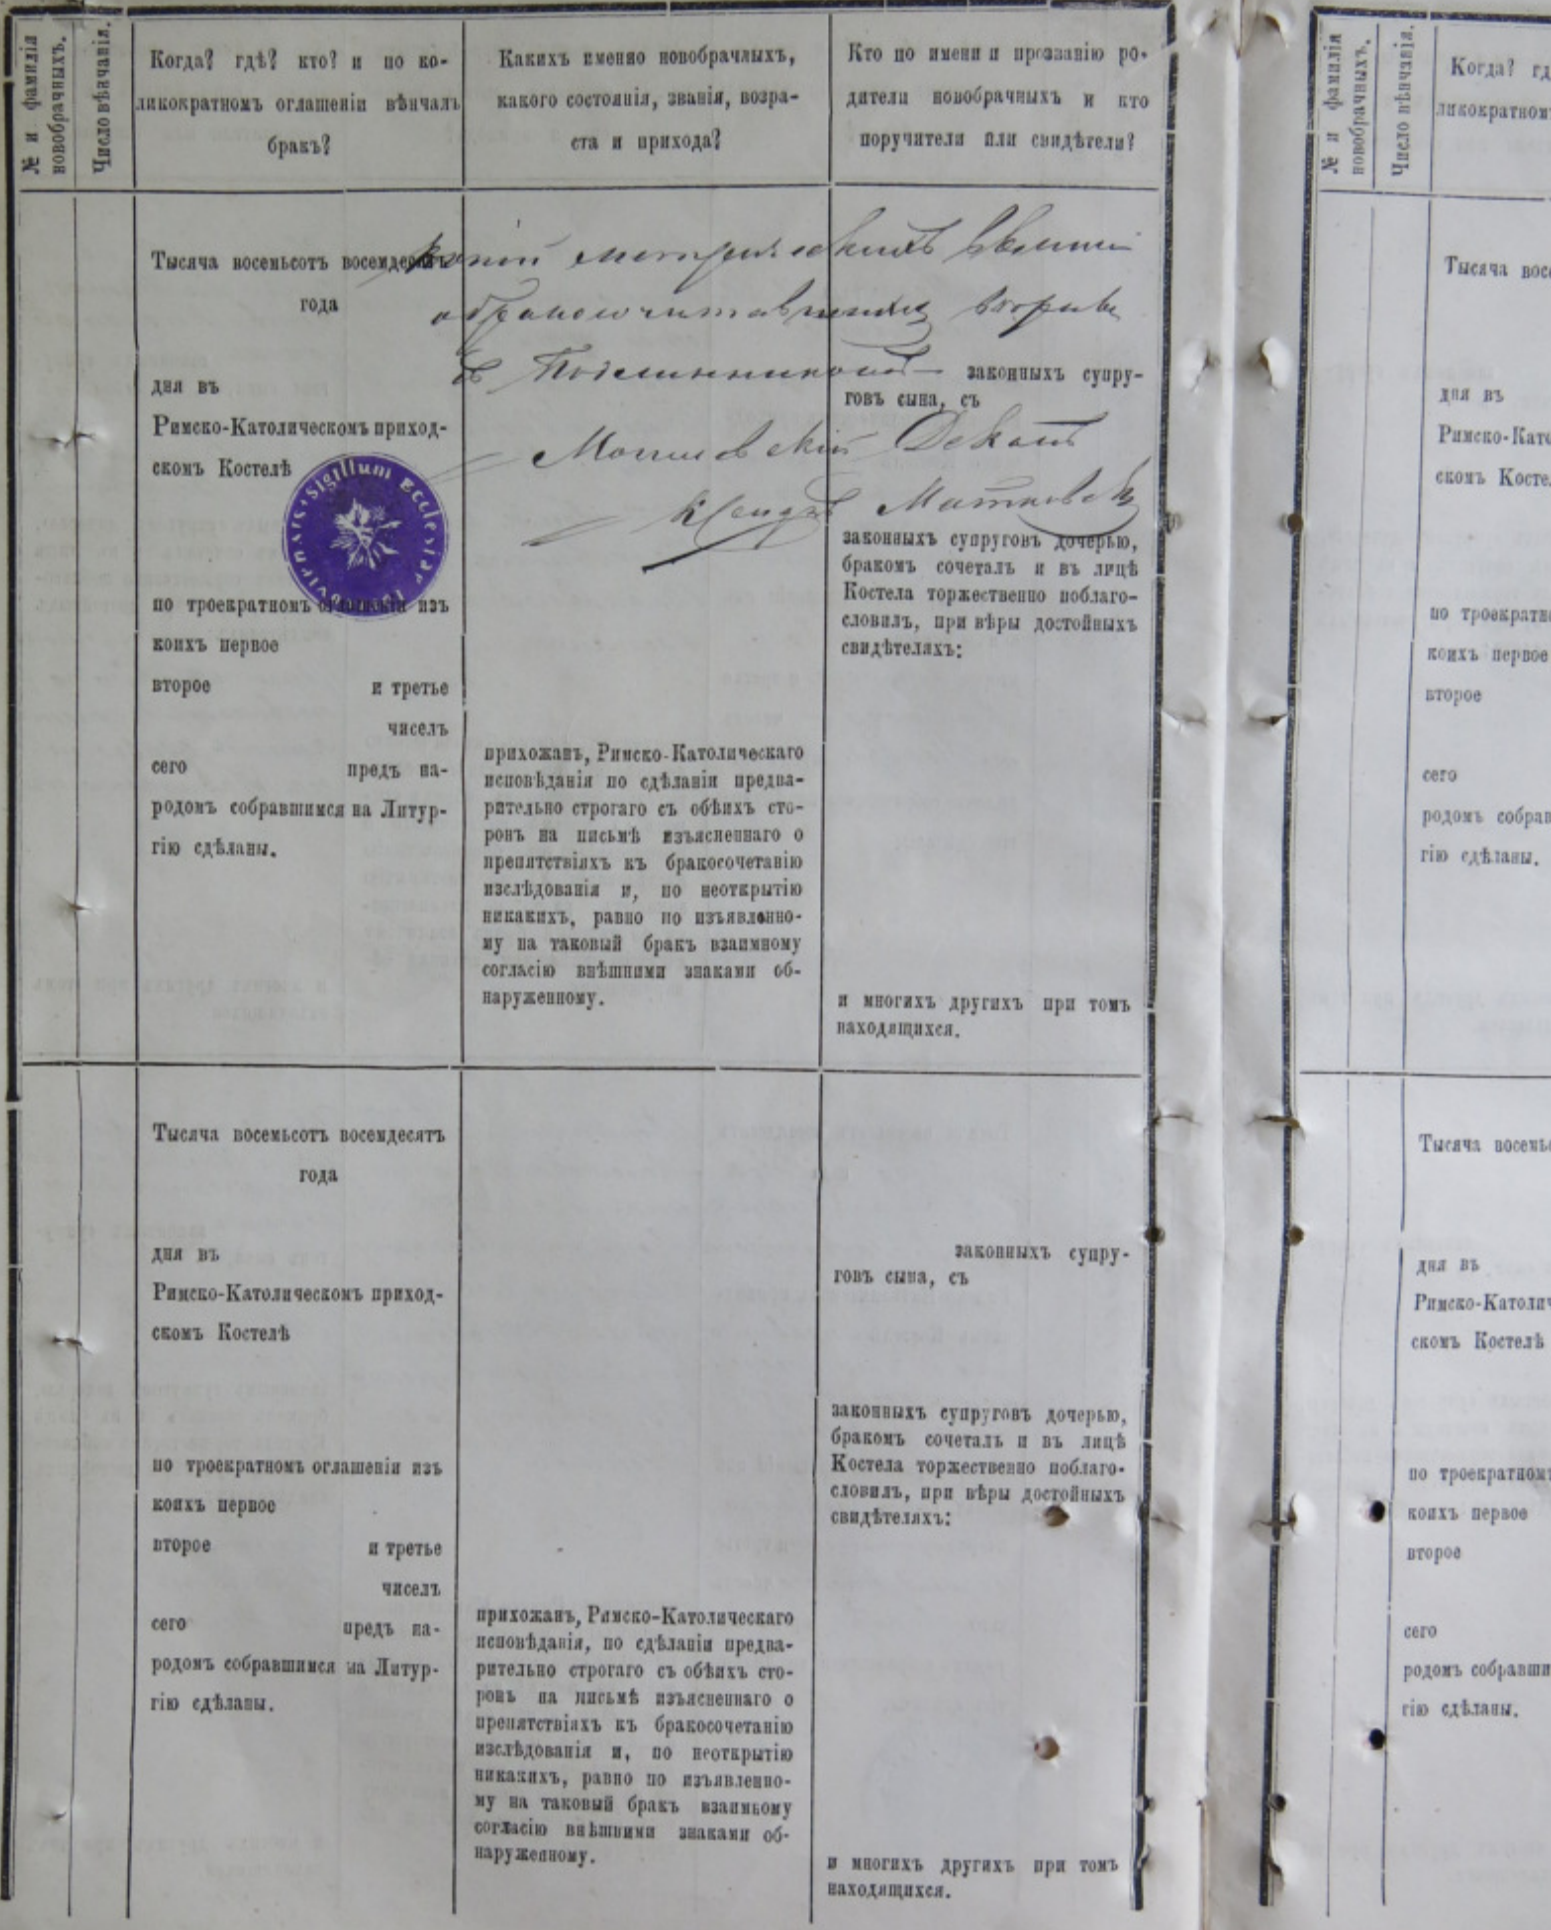 № и фамилія новобрачныхъ.
Число вѣнчанія.
Когда? гдѣ? кто? и по ко-
ликократномъ оглашеніи вѣнчалъ
бракъ?
Какихъ именно новобрачныхъ,
какого состоянія, званія, возра-
ста и прихода?
Кто по имени и прозванію ро-
дители новобрачныхъ и кто
поручители или свидѣтели?
Тысяча восемьсотъ восемдесятъ
года
дня въ
Римско-Католическомъ приход-
скомъ Костелѣ
Sigillum Ecclesiae
по троекратномъ оглашеніи изъ
коихъ первое
второе и третье
чиселъ
сего предъ на-
родомъ собравшимся на Литур-
гію сдѣланы.
копій метрическихъ
съ Подлинникомъ
Могилевскій Деканъ
Ксендзъ
прихожанъ, Римско-Католическаго
исповѣданія по сдѣланіи предва-
рительно строгаго съ обѣихъ сто-
ронъ на письмѣ изъясненнаго о
препятствіяхъ къ бракосочетанію
изслѣдованія и, по неоткрытію
никакихъ, равно по изъявленно-
му на таковый бракъ взаимному
согласію внѣшними знаками об-
наруженному.
законныхъ супру-
говъ сына, съ
законныхъ супруговъ дочерью,
бракомъ сочеталъ и въ лицѣ
Костела торжественно поблаго-
словилъ, при вѣры достойныхъ
свидѣтеляхъ:
и многихъ другихъ при томъ
находящихся.
Тысяча восемьсотъ восемдесятъ
года
дня въ
Римско-Католическомъ приход-
скомъ Костелѣ
по троекратномъ оглашеніи изъ
коихъ первое
второе и третье
чиселъ
сего предъ на-
родомъ собравшимся на Литур-
гію сдѣланы.
прихожанъ, Римско-Католическаго
исповѣданія, по сдѣланіи предва-
рительно строгаго съ обѣихъ сто-
ронъ на письмѣ изъясненнаго о
препятствіяхъ къ бракосочетанію
изслѣдованія и, по неоткрытію
никакихъ, равно по изъявленно-
му на таковый бракъ взаимному
согласію внѣшними знаками об-
наруженному.
законныхъ супру-
говъ сына, съ
законныхъ супруговъ дочерью,
бракомъ сочеталъ и въ лицѣ
Костела торжественно поблаго-
словилъ, при вѣры достойныхъ
свидѣтеляхъ:
и многихъ другихъ при томъ
находящихся.
№ и фамилія новобрачныхъ.
Число вѣнчанія.
Когда? гд
ликократном
Тысяча восе
дня въ
Римско-Като
скомъ Косте
по троекратно
коихъ первое
второе
сего
родомъ собрав
гію сдѣланы.
Тысяча восемьс
дня въ
Римско-Католич
скомъ Костелѣ
по троекратном
коихъ первое
второе
сего
родомъ собравши
гію сдѣланы.